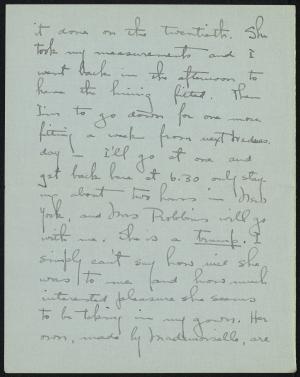 it done on the twentieth. She
took my measurements and I
went back in the afternoon to
have the lining fitted. Then
I'm to go down for one more
fitting a week from next Wednes-
day — I'll go at one and
get back here at 6.30 only stay-
ing about two hours in New
York, and Mrs Robbins will go
with me. She is a trump. I
simply can't say how nice she
was to me and how much
interested pleasure she seems
to be taking in my gown. Her
own, made by Mademoiselle, are